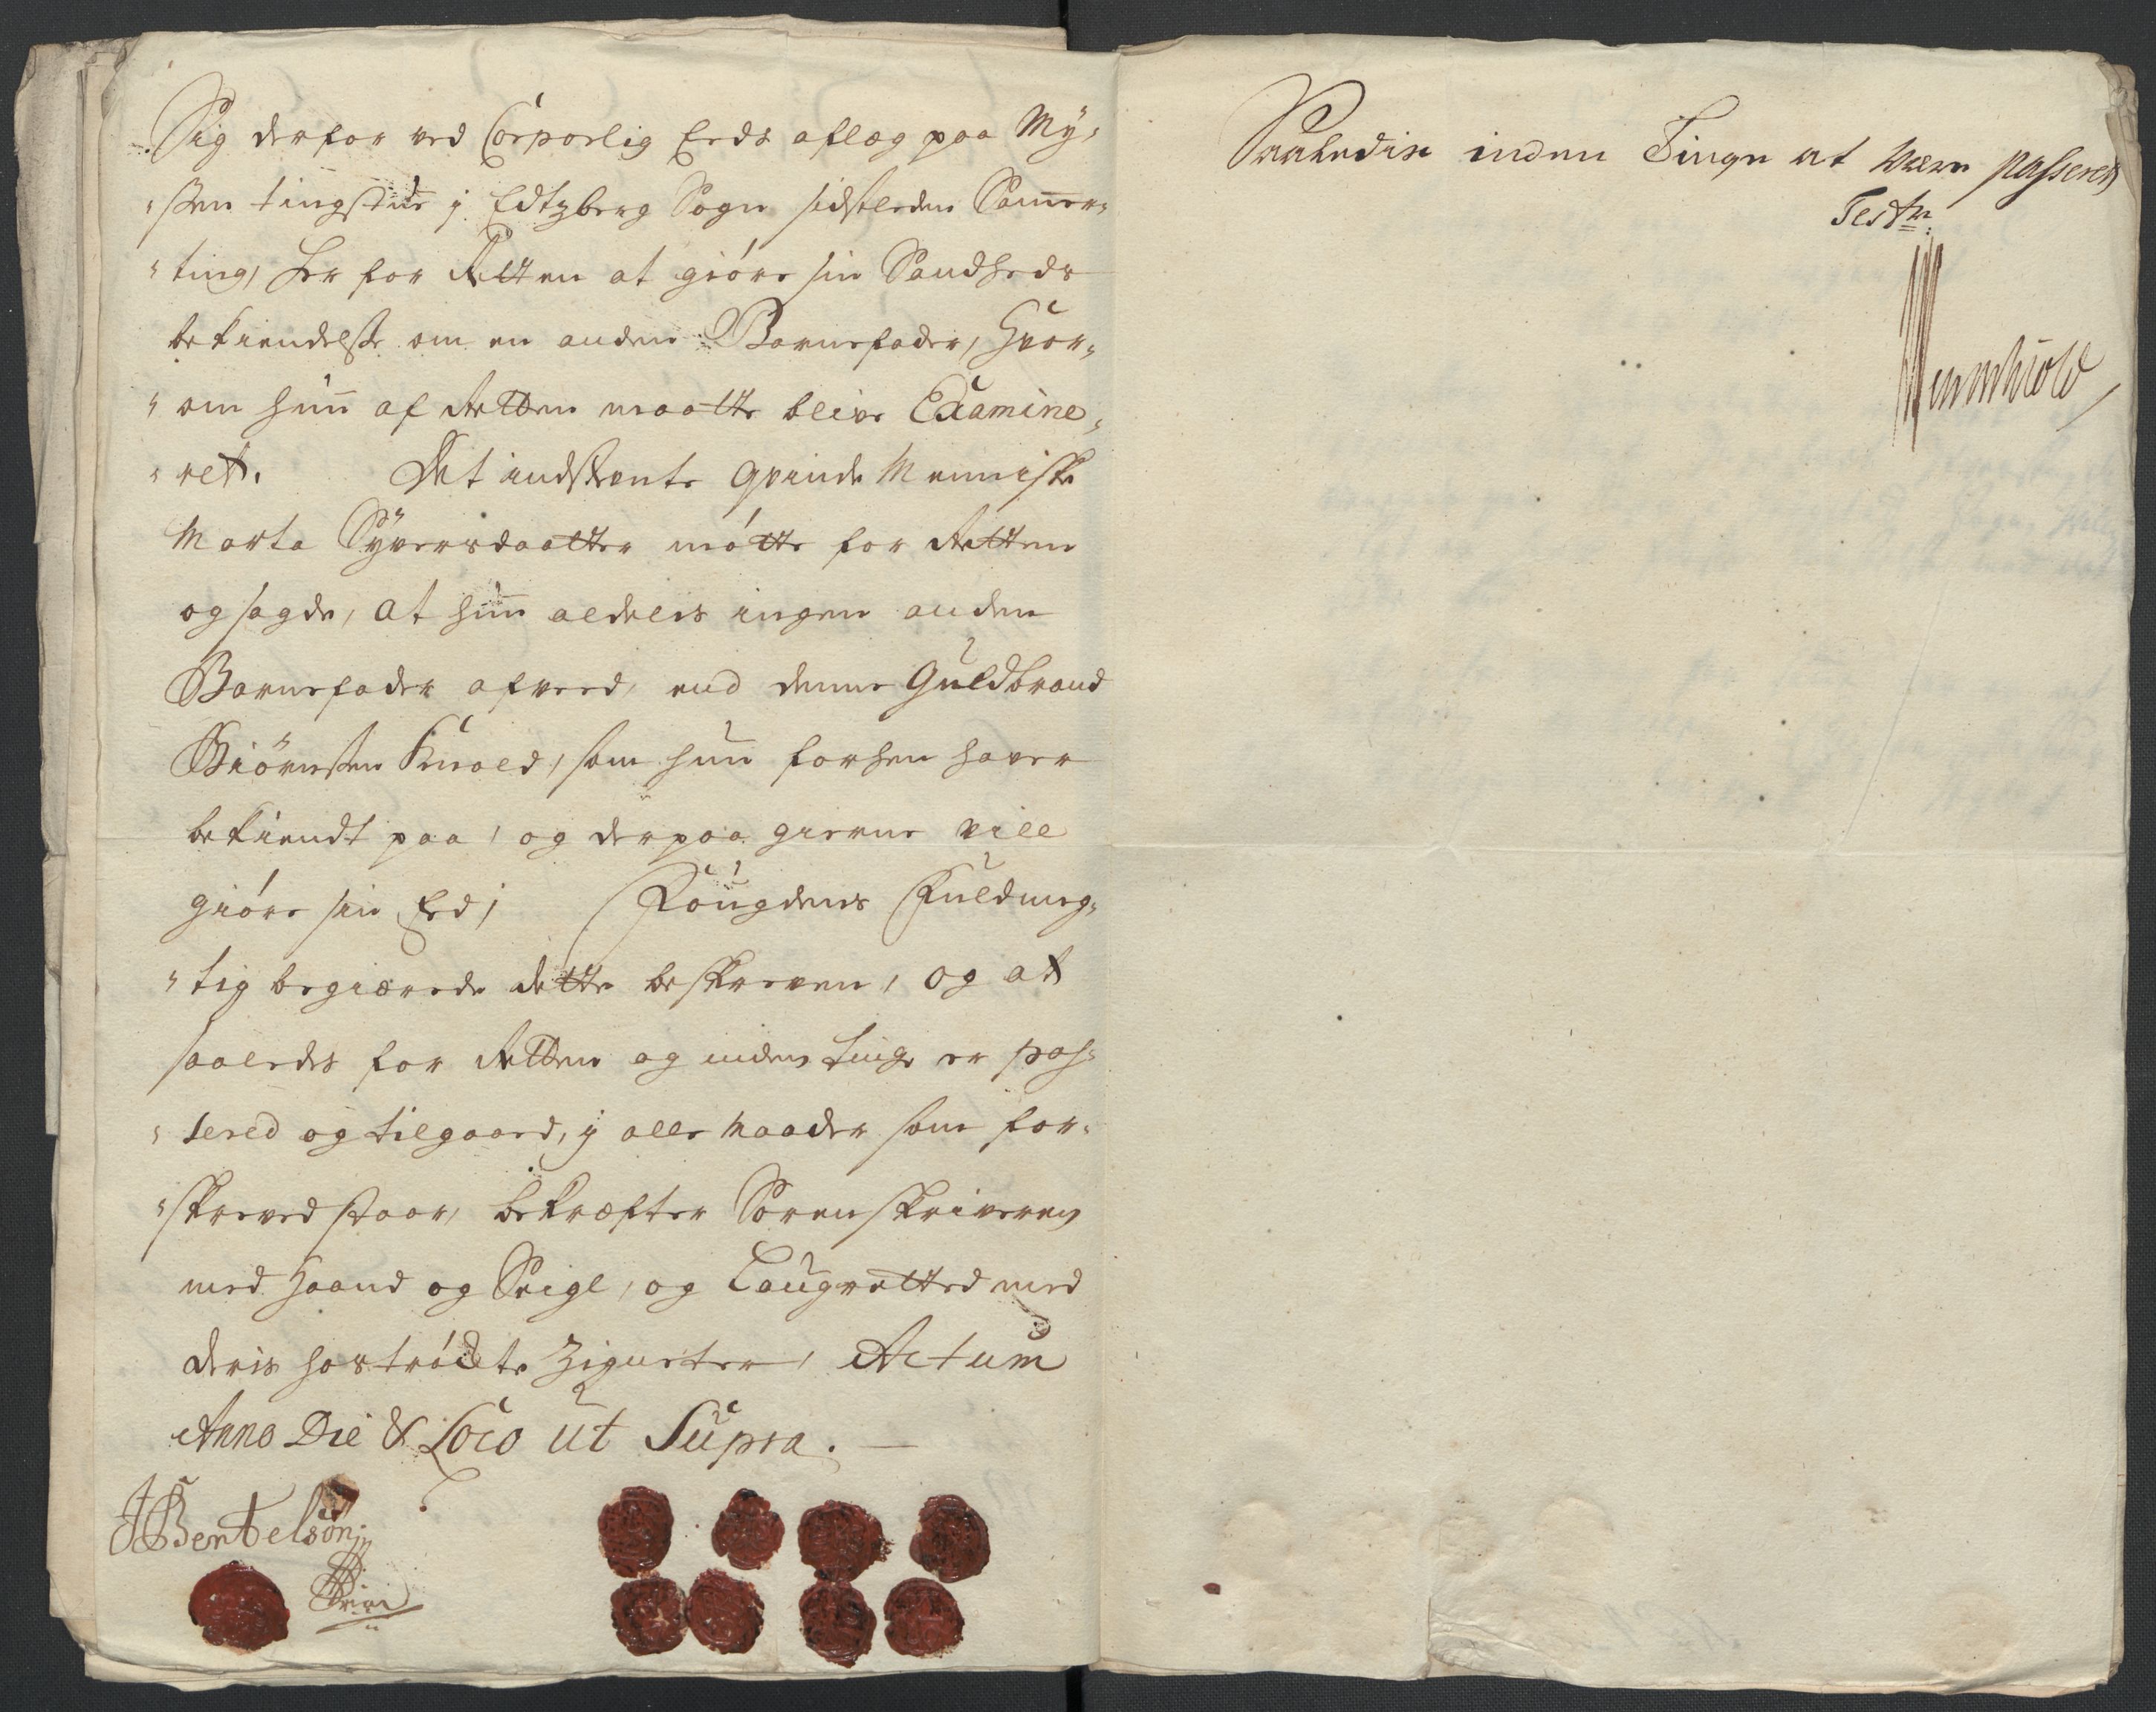 Sig derfor ved Corporlig Eeds aflæg paa My-
sen tingstue j Edtzberg Sogn sidstleden Somer-
ting, her for Retten at giöre sin Sandheds
bekiendelse om en anden Barnefader, Hvor-
om hun af Retten maatte blive Examine-
ret. Det indstevnte qvinde Menniske
Marta Syversdaatter mötte for Retten
og sagde, at hun aldeles ingen anden
Barnefader afveed, end denne Guldbrand
Biörnsen Knold, som hun forhen haver
bekiendt paa, og derpaa gierne vill
giöre sin Eed; Fougdens Fuldmeg-
tig begiærede dette beskreven, og at
saaledes for Retten og inden Tinge er pas-
sered og tilgaaed, j alle Maader som for-
skreved staar, bekræfter Sorenskriveren
med Haand og Seigl, og Laugretted med
deris hoströchte Zigneter, Actum
Anno Die & Loco ut Supra.
JBentelsön
Saaledis inden Tinge at være passeret
Test: